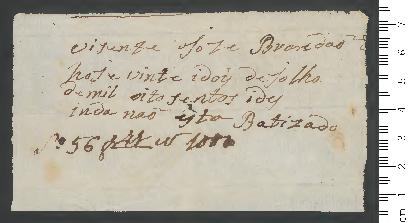 visente Joze Brandaõ
hoje vinte idois de Julho
de mil oito sentos idez
inda naõ esta Batizado
Nº 56